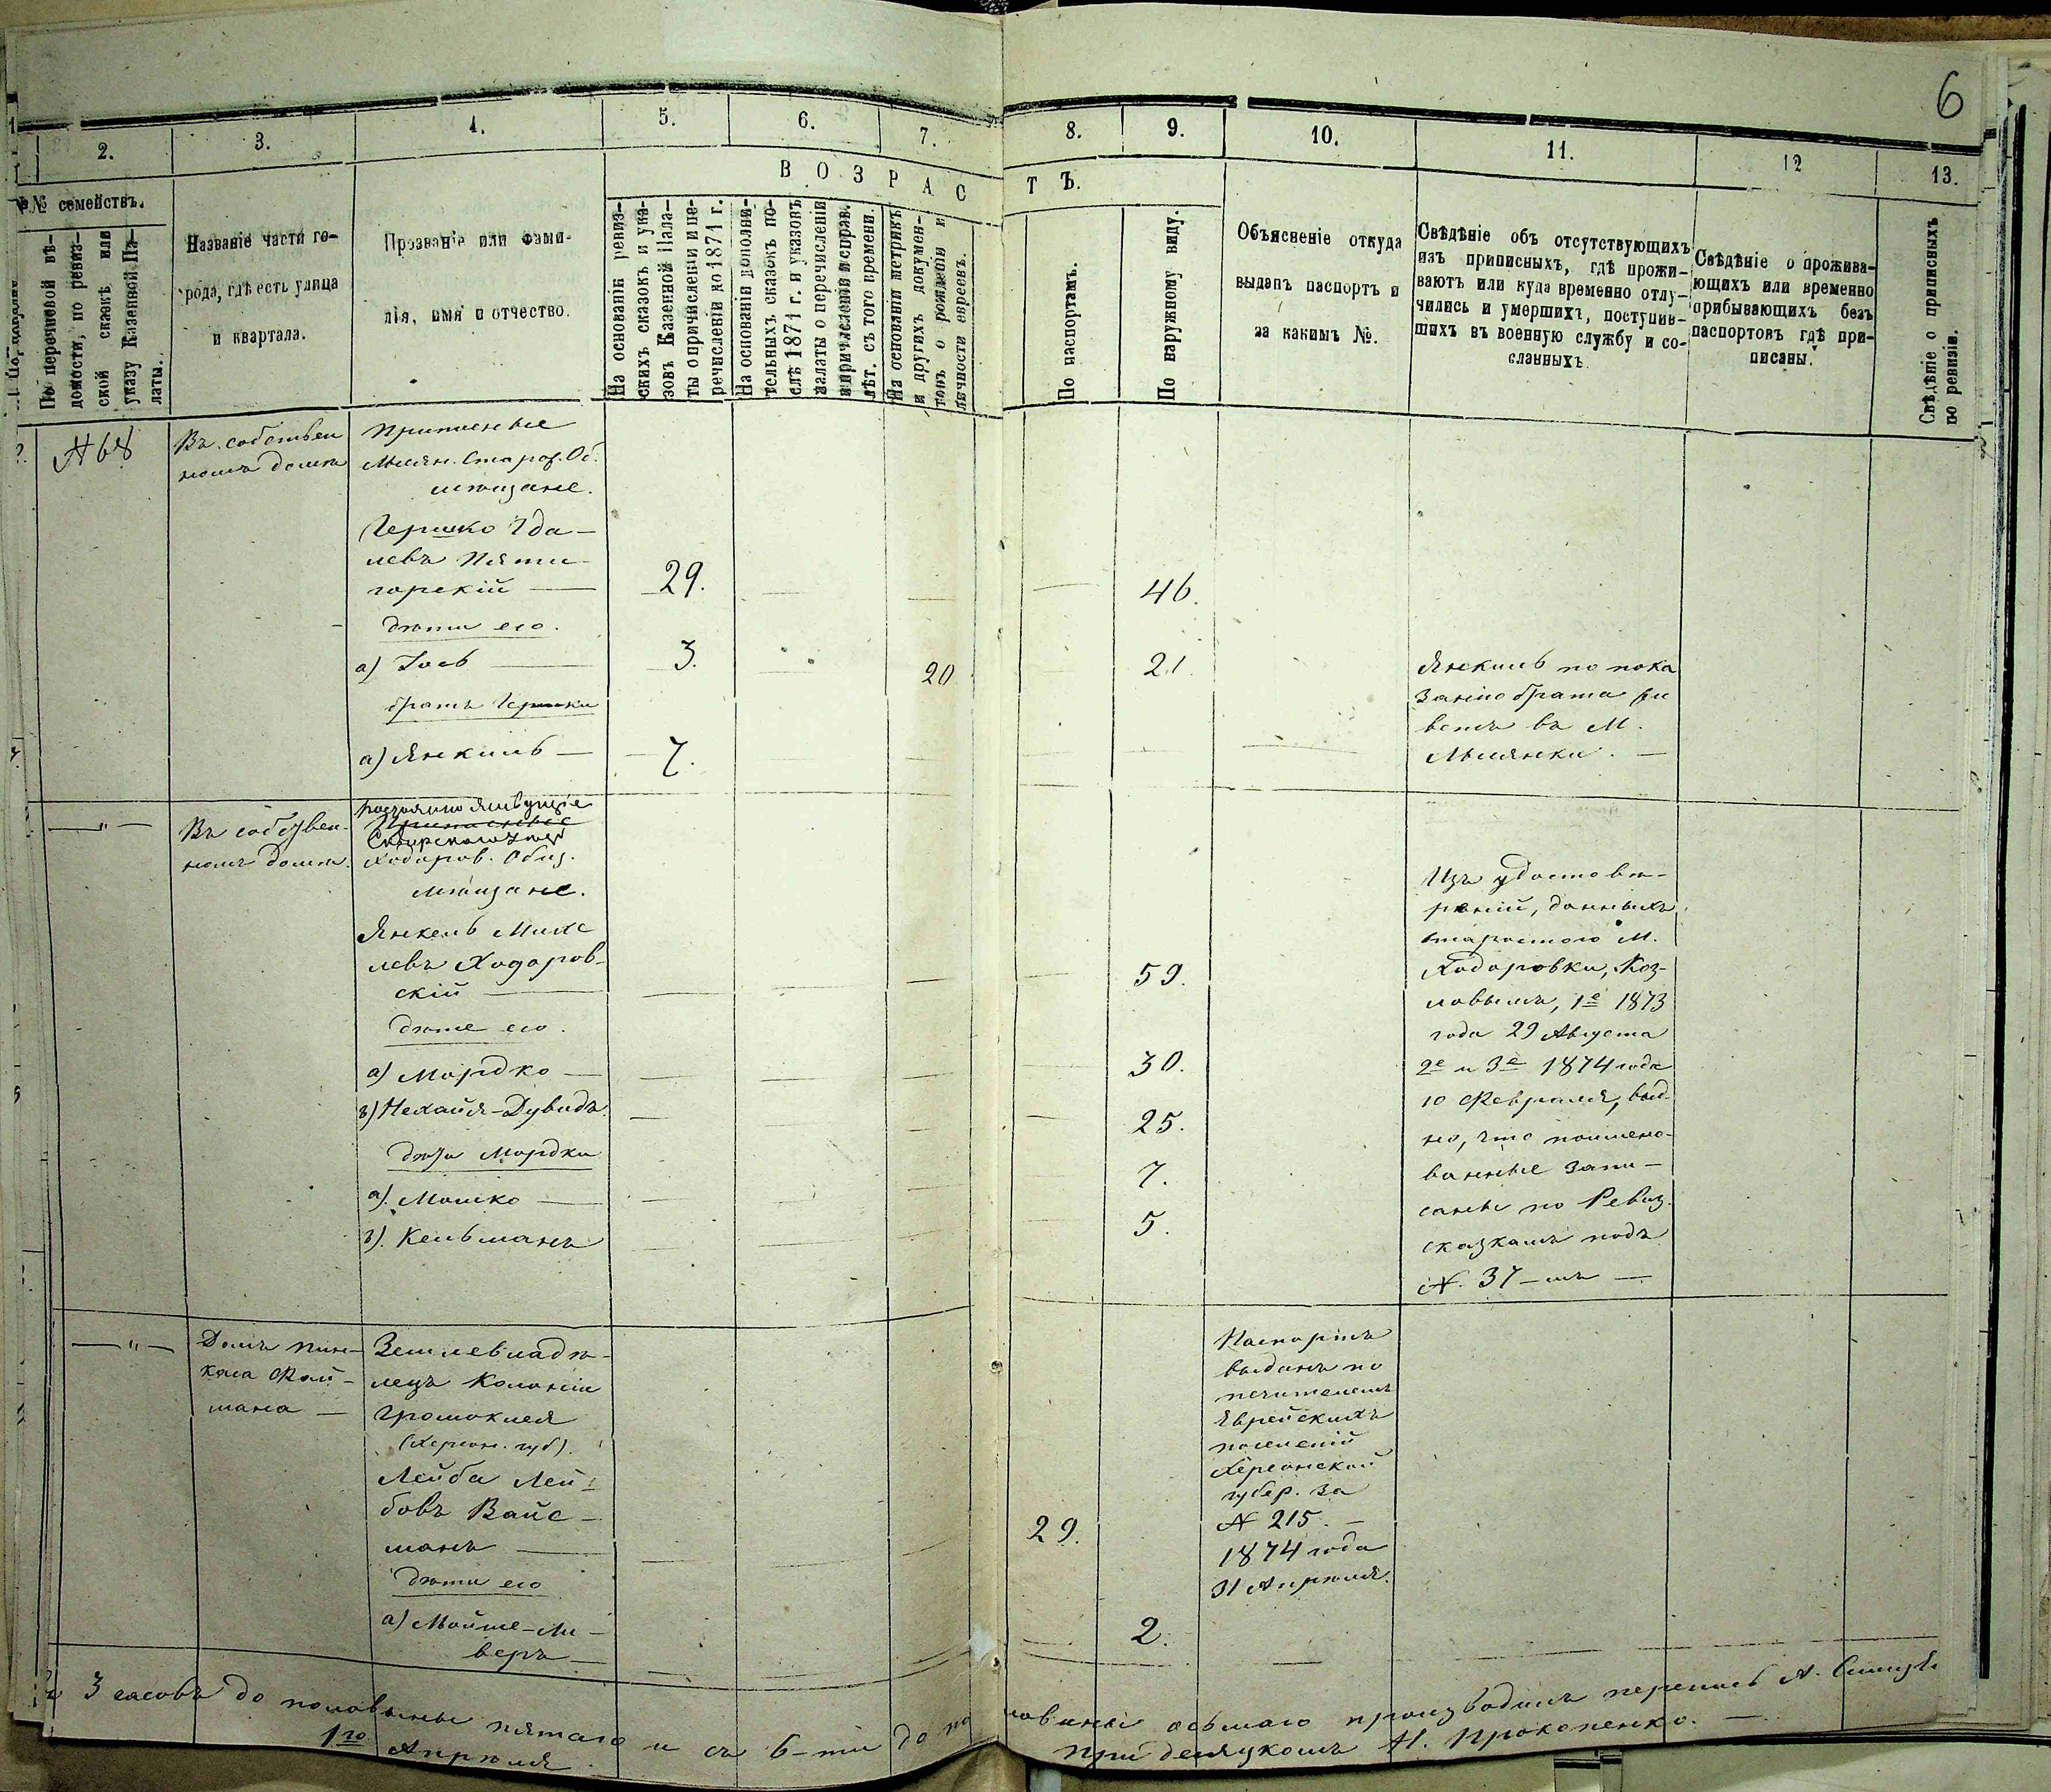 6
1
2.
3.
4.
5.
6.
7.
8.
9.
10.
11.
12
13.
ВОЗРАСТЪ.
№№ семействъ.
По перечневой вѣ-
домости, по ревиз-
ской сказкѣ или
указу Казенной Па-
латы.
Названіе части го-
рода, гдѣ есть улица
и квартала.
Прозваніе или фами-
лія, имя и отчество.
На основаніи ревиз-
скихъ сказокъ и ука-
зовъ Казенной Пала-
ты о причисленіи и пе-
речисленіи до 1871 г.
На основаніи дополни-
тельныхъ сказокъ по-
слѣ 1871 г. и указовъ
палаты о перечисленіи
и причисленіи и исправ.
лѣт. съ того времени.
На основаніи метрикъ
и другихъ докумен-
товъ о рожденіи и
личности евреевъ.
По паспортамъ.
По наружному виду.
Объясненіе откуда
выданъ паспортъ и
за какимъ №.
Свѣдѣніе объ отсутствующихъ
изъ приписныхъ, гдѣ прожи-
ваютъ или куда временно отлу-
чились и умершихъ, поступив-
шихъ въ военную службу и со-
сланныхъ.
Свѣдѣніе о прожива-
ющихъ или временно
прибывающихъ безъ
паспортовъ гдѣ при-
писаны.
Свѣдѣніе о приписныхъ
по ревизіи.
№ 68
Въ собствен
номъ домѣ
Приписные
Об.
мѣщане.
Гершко Іда-
левъ Пяти-
горскій —
29.
46.
дѣти его.
а) Іось —
3.
20
21.
братъ Гершки
а) Янкиль —
7.
Янкиль по пока
занію брата жи
ветъ въ М.
Мілянки. —
— " —
Въ собствен-
номъ домѣ.
постоянно живущіе
Приписные
Сквирскаго уезд
Ходоров. Общ.
мѣщане.
Янкель Михе
левъ Ходоров-
скій —
59.
дѣти его.
а) Мордко —
30.
в) Нехайя-Дувидъ.
25.
дѣти Мордки
а). Мошко —
7.
в). Кельманъ
5.
Изъ удостовѣ-
реній, данныхъ
старостою М.
Ходоровки, Коз-
ловымъ, 1е 1873
года 29 Августа
2е и 3е 1874 года
10 Февраля, вид-
но, что поимено-
ванные запи-
саны по Ревиз.
сказкамъ подъ
№. 37-мъ —
— " —
Домъ Пин-
каса Фай-
мана —
Землевладѣ-
лецъ Колоніи
Громоклея
(Херсон. губ).
Лейба Лей-
бовъ Вайс-
манъ —
29.
дѣти его
а) Мойше-Ли-
беръ —
2.
Паспортъ
выданъ по
печителемъ
Еврейскихъ
поселеній
Херсонской
губер. за
№ 215. —
1874 года
31 Апрѣля.
3 часовъ до половины пятаго и съ 6-ти до половины осьмаго производилъ перепись А.
1го Апрѣля.
При десяцкомъ Н. Прокопенко. —